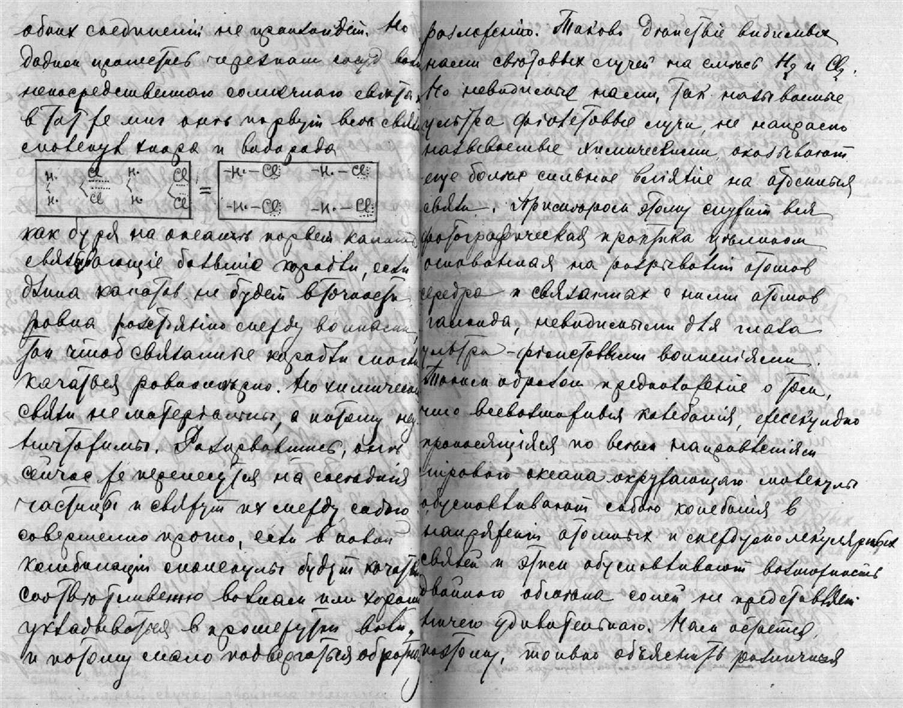 обоихъ соединенiй не происходитъ. Но
непосредственного солнечного свѣта,
в тотъ же миг они порвутъ всѣ связи
молекул хлора и водорода
H. Cl H. Cl = -H.-Cl -H.-Cl
H. Cl H. Cl -H.-Cl -H.-Cl
как буря на океанѣ порвет канаты
связующiе большiе корабли, если
длина канатов не будет в точности
ровна разстоянiю между волнами,
так чтоб связанные корабли могли
качаться равномѣрно. Но химическiя
связи не матерiальны, а потому не
уничтожимы. Разорвавшись, они
сейчас же перенесутся на сосѣднiя
частицы и свяжут их между собою
совершенно прочно, если в новой
комбинацiи молекулы будут качаться
соотвѣтственно волнам или хорошо
укладываться в промежутки волн,
и потому мало подвергаться обратному
разложенiю. Таково дѣйствiе видимых
нами свѣтовых лучей на смѣсь H2 и Cl2.
Но невидимые нами, так называемые
ультра фiолетовые лучи, не напрасно
называемые химическими, оказывают
еще более сильное влiянiе на атомныя
связи. этому служит вся
фотографическая практика цѣликом
основанная на разрыванiи атомов
серебра и связанных с ними атомов
галоида, невидимыми для глаза
ультра-фiолетовыми волненiями.
Таким образом предположенiе о том,
что всевозможныя колебанiя, ежесекундно
проносящiяся по всѣм направленiям
мирового океана окружающаго молекулы
обусловливают собою колебанiя в
напряженiи атомных и междумолекулярных
связей и этим обусловливают возможность
двойного обмѣна солей не представляет
ничего удивительнаго. Нам остается,
поэтому, только объяснить различiя